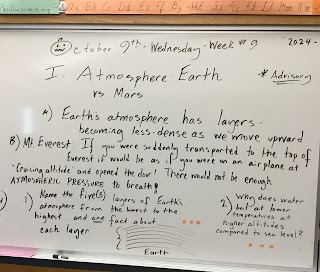 October 9th - Wednesday - Week #9 2024 -
I. Atmosphere: Earth
vs Mars
* Advisory
A) Earth's atmosphere has layers
becoming less-dense as we move upward
B) Mt Everest: If you were suddenly transported to the top of
Everest it would be as if you were on an airplane at
"Cruising altitude" and opened the door! There would not be enough
ATMOSPHERIC PRESSURE to breath!
1) Name the five(5) layers of Earth's
atmosphere from the lowest to the
highest and one fact about
each layer.
Earth
2) Why does water
boil at lower
temperatures at
higher altitudes
compared to sea level?